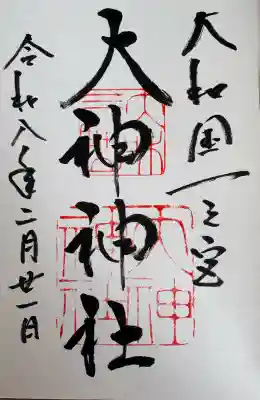 大和国一之宮
大神神社
令和八年二月廿一日